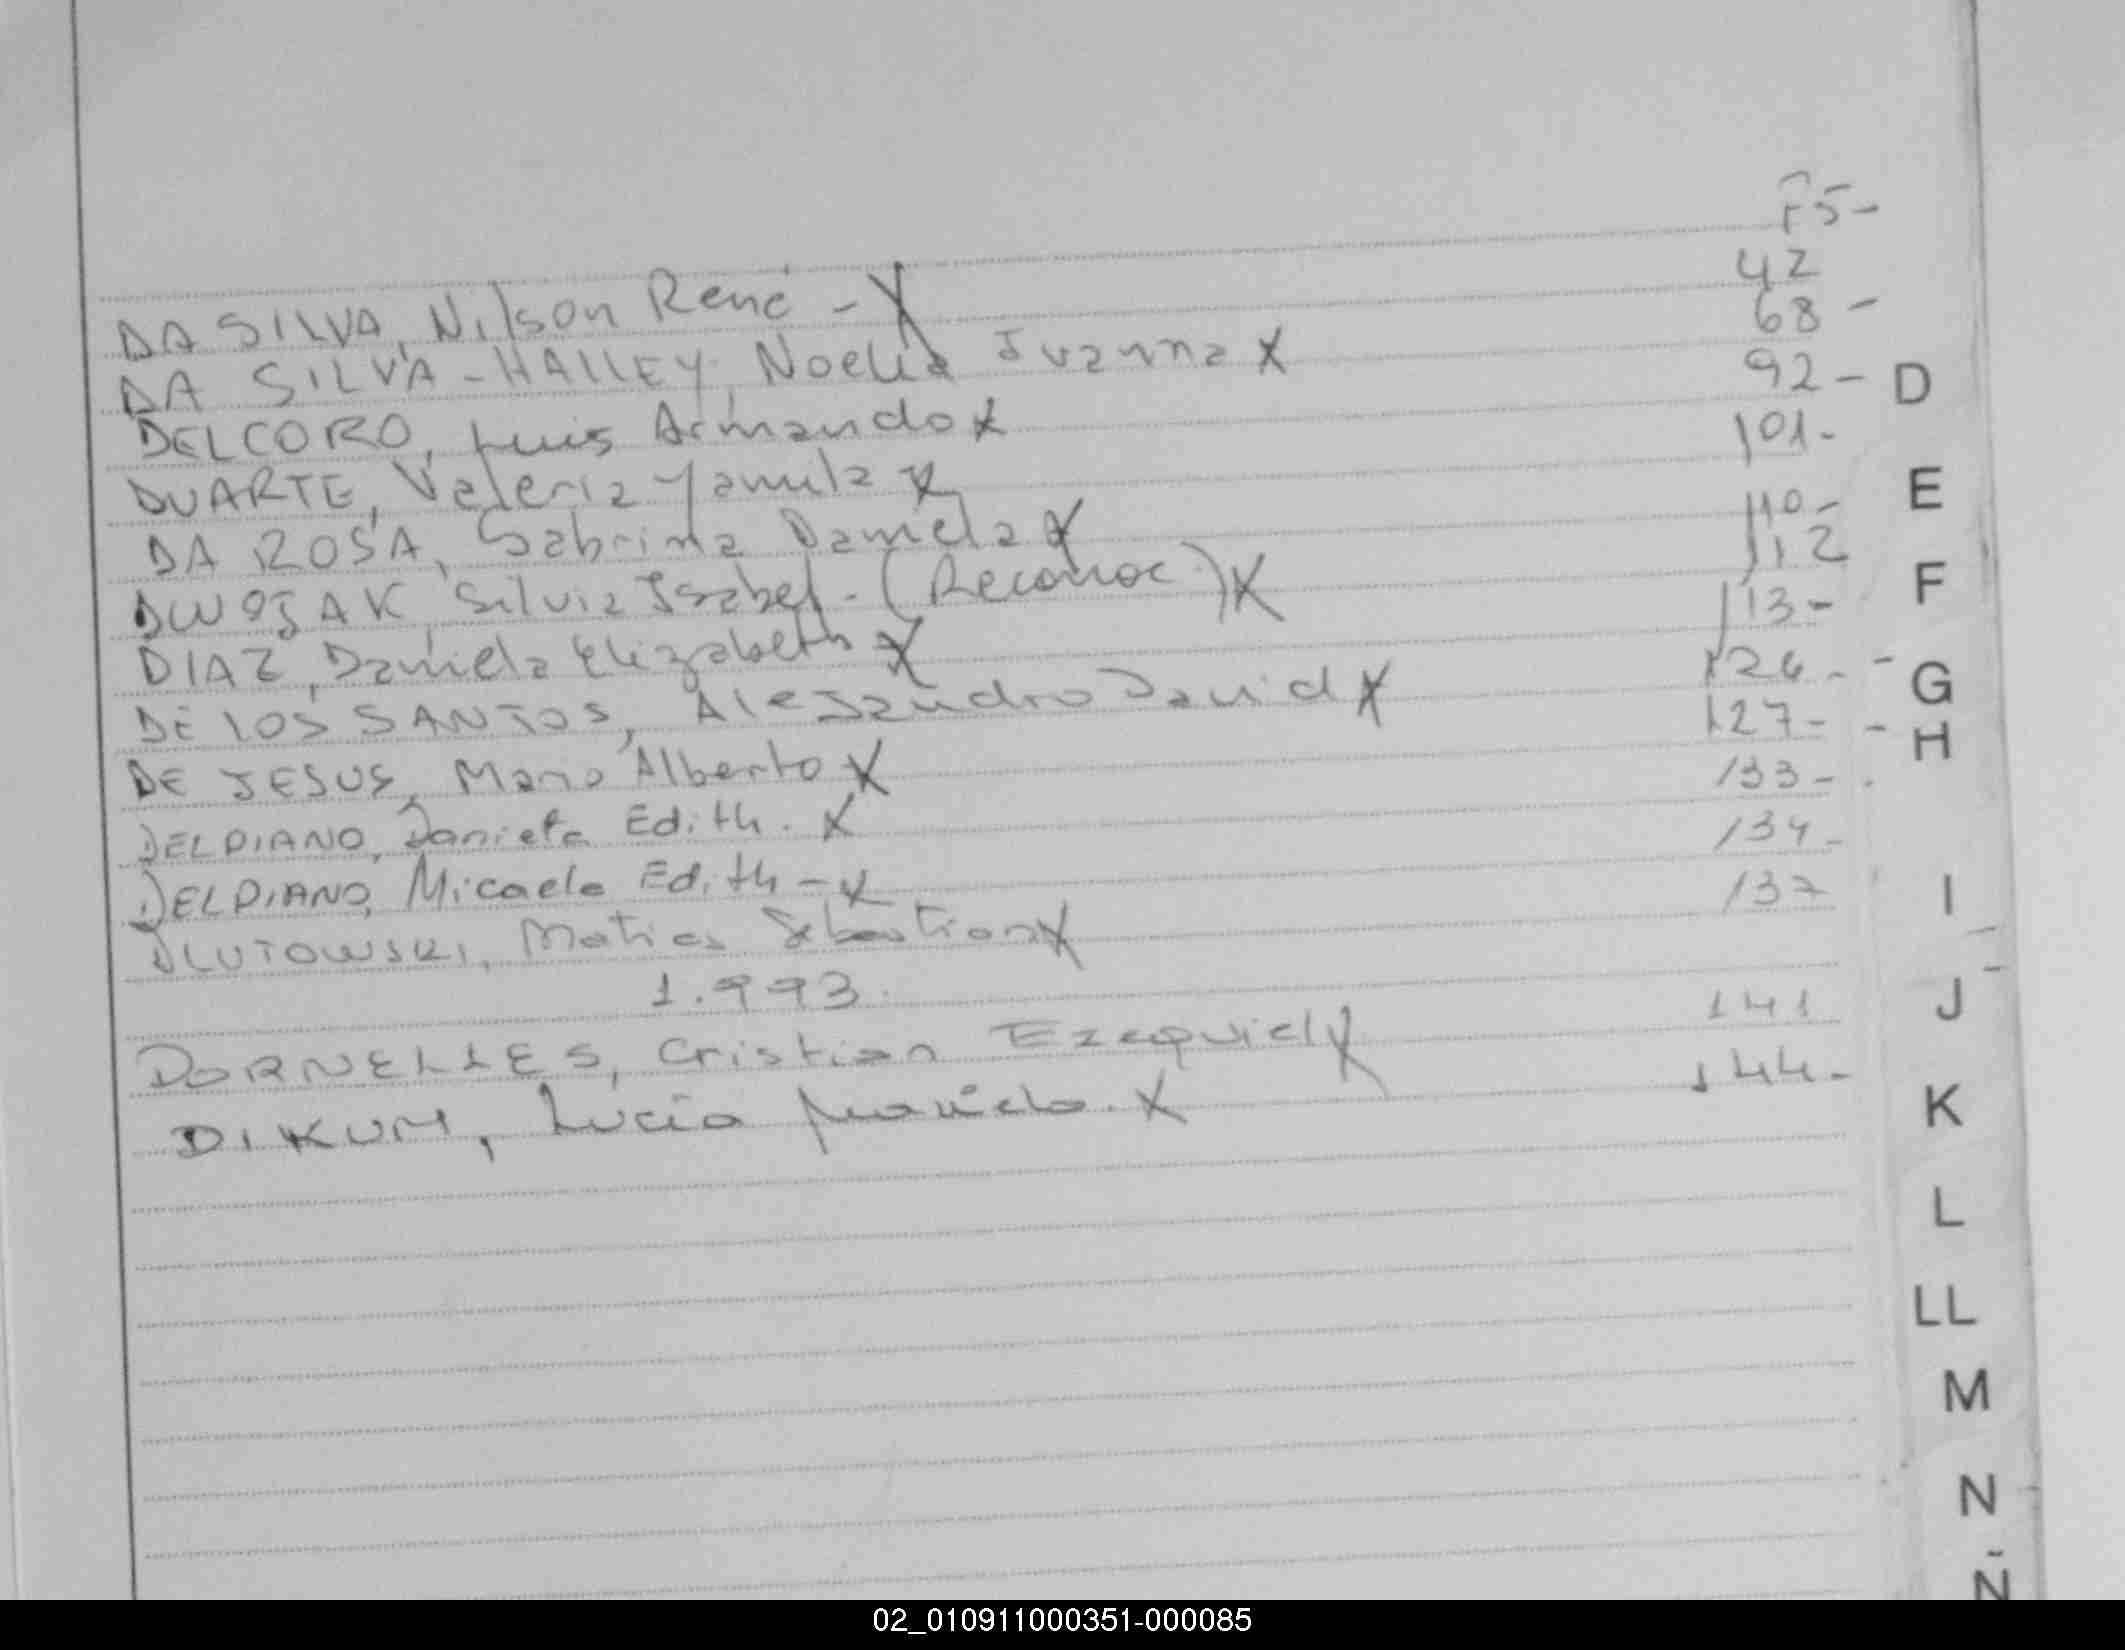 DA SILVA, Nilson René - X F5-
DA SILVA-HALLEY, Noelia Ivanna X 42
DELCORO, Luis Armando X 68 -
DUARTE, Valeria Yamila X 92 -
DA ROSA, Sabrina Daniela X 101-
DWOJAK, Silvia Isabel - (Reconoc.) X 110-
DIAZ, Daniela Elizabeth X 112
DE LOS SANTOS, Alejandro David X 113-
DE JESUS, Mario Alberto X 126 -
DELPIANO, Daniela Edith. X 127-
DELPIANO, Micaela Edith - X 133-
DLUTOWSKI, Matias Sebastian X 134-
1.993. 137
DORNELLES, Cristian Ezequiel X 141
DIKUM, Lucia X 144-
D
E
F
G
H
I
J
K
L
LL
M
N
Ñ
02_010911000351-000085